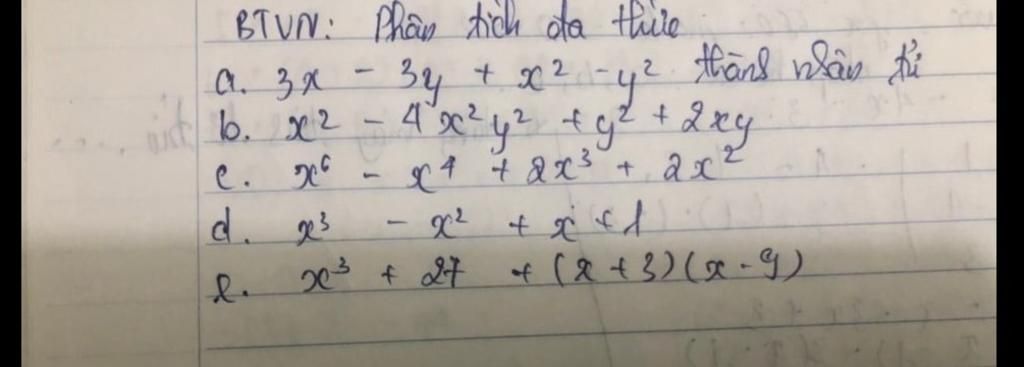 BTVN: Phân tích đa thức
a. 3x - 3y + x² - y² thành nhân tử
b. x² - 4x²y² + y² + 2xy
c. x⁶ - x⁴ + 2x³ + 2x²
d. x³ - x² + x + 1
e. x³ + 27 + (x + 3)(x - 9)